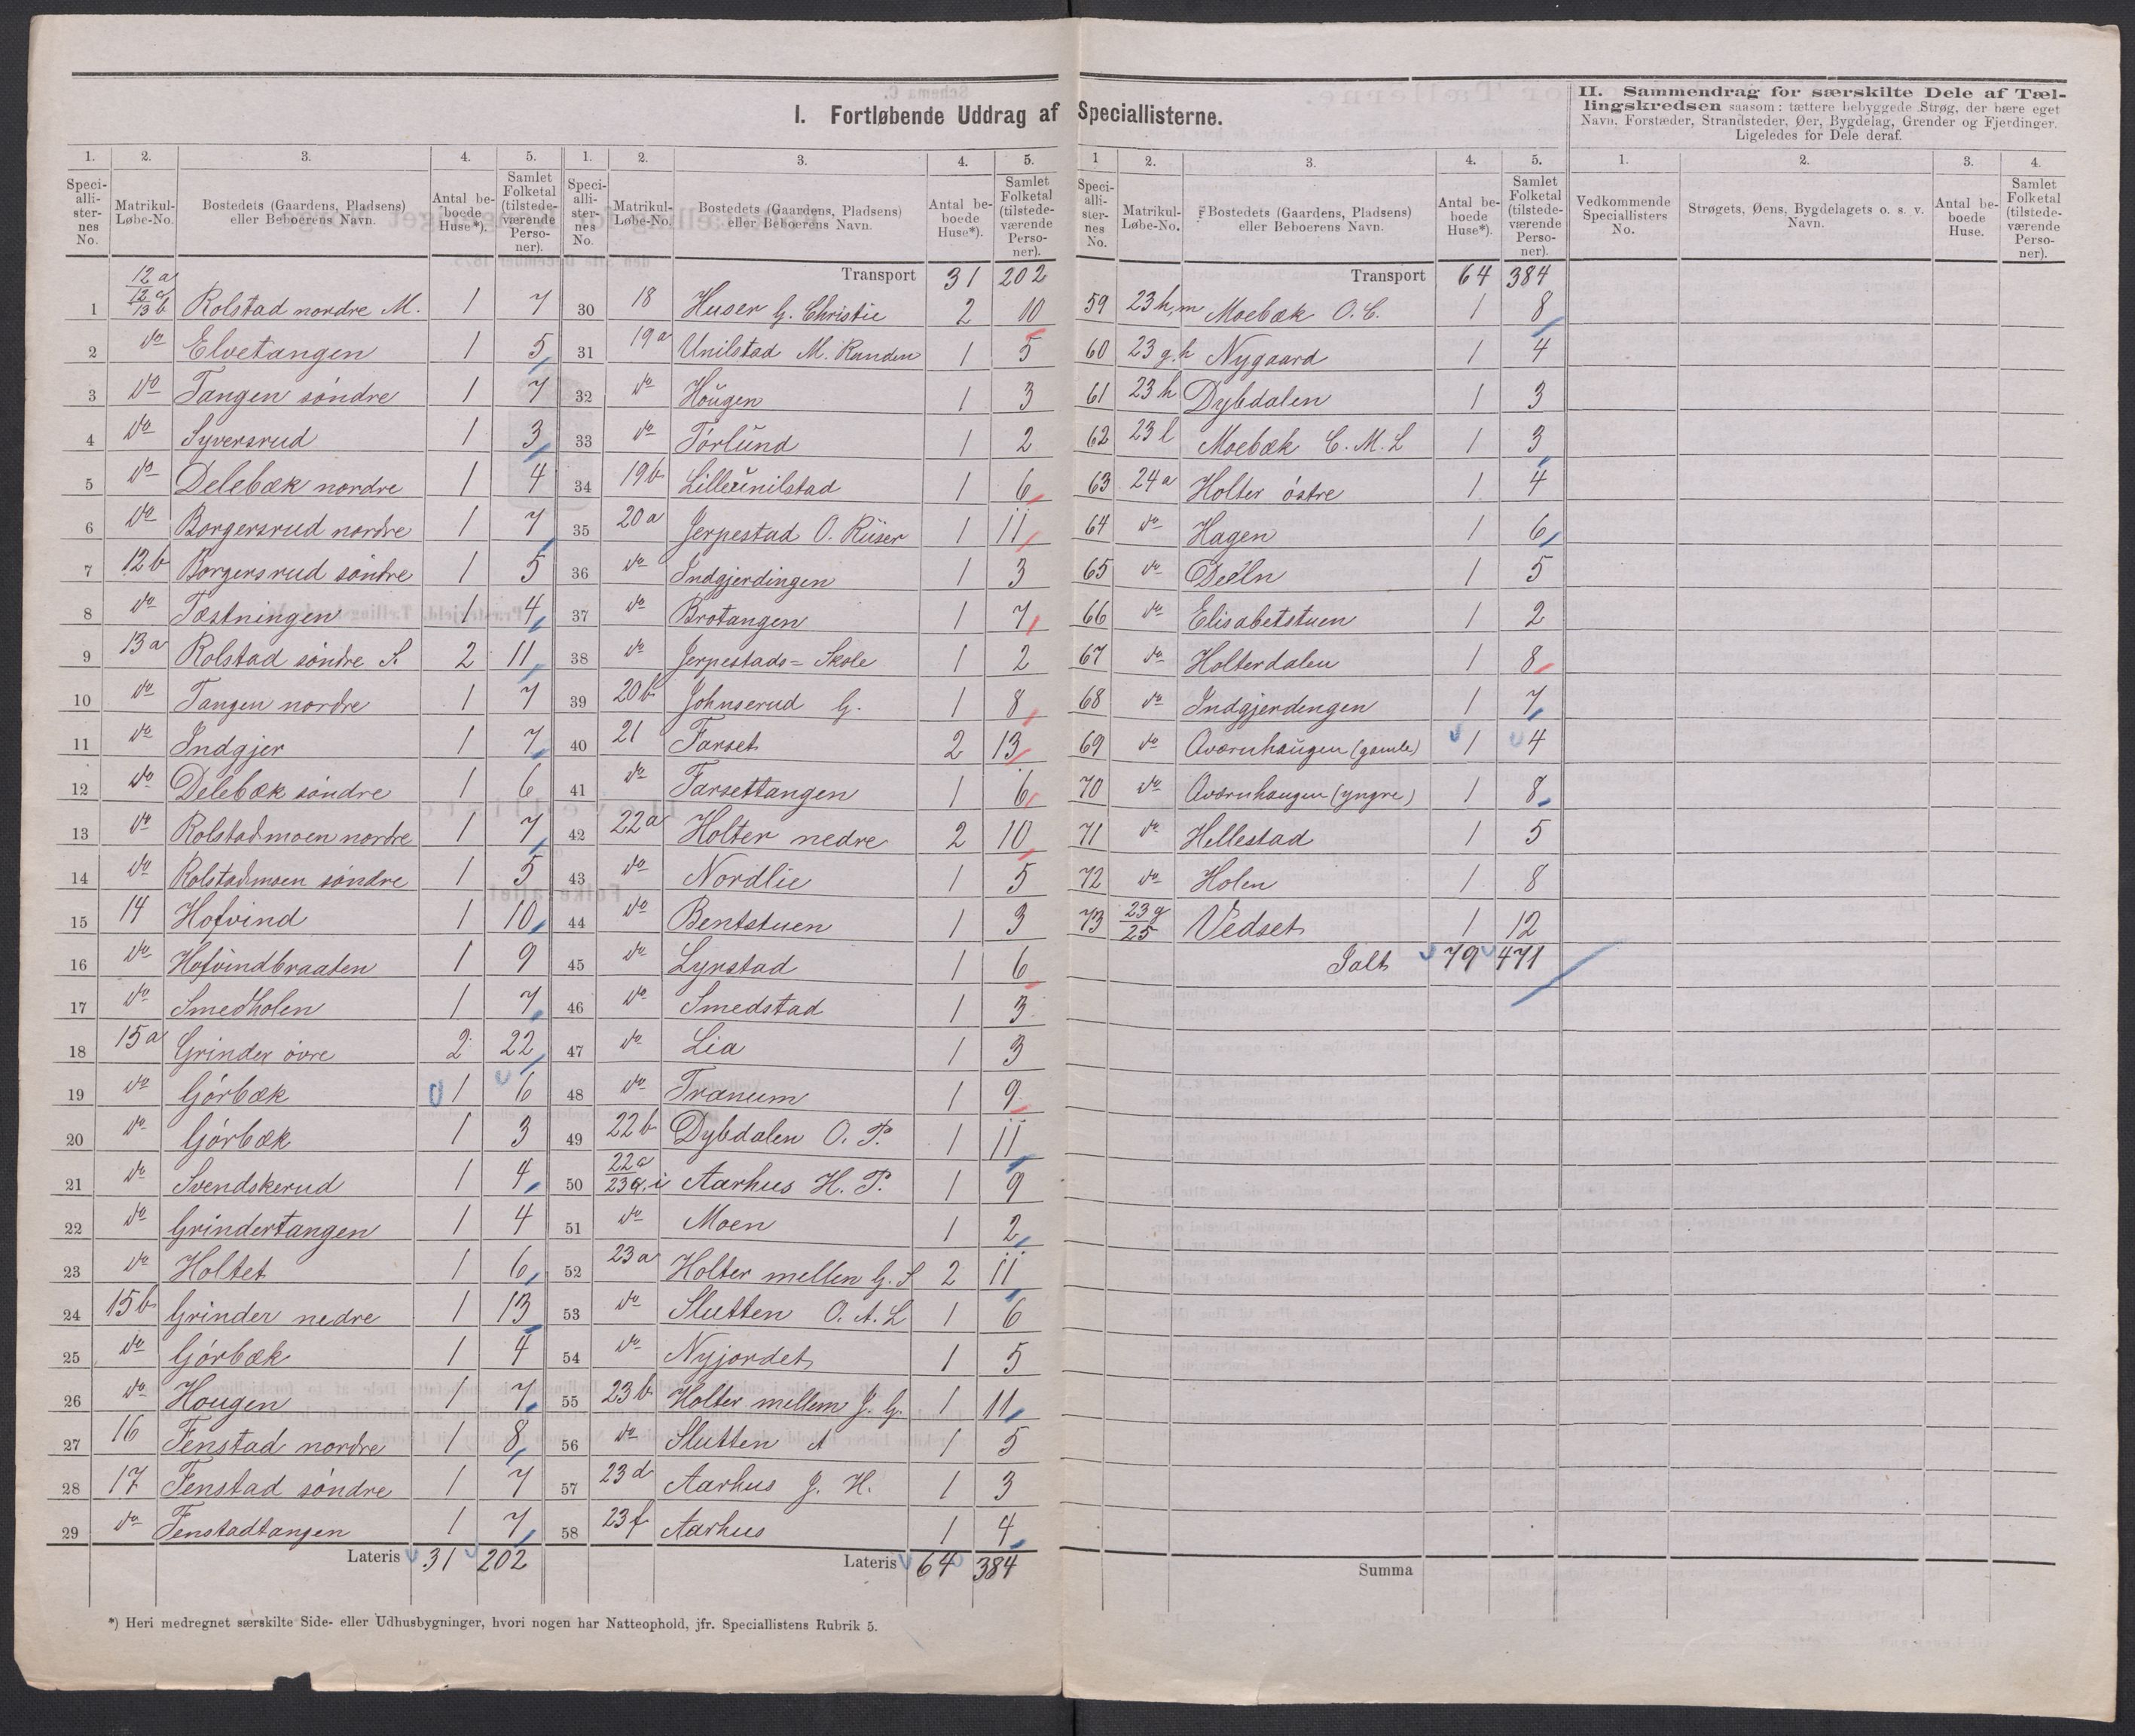 I. Fortløbende Uddrag af Speciallisterne.
II. Sammendrag for særskilte Dele af Tællingskredsen saasom: tættere bebyggede Strøg, der bære eget Navn, Forstæder, Strandsteder, Øer, Bygdelag, Grender og Fjerdinger. Ligeledes for Dele deraf.
1. 2. 3. 4. 5.
Speciallisternes No. | Matrikul-Løbe-No. | Bostedets (Gaardens, Pladsens) eller Beboerens Navn. | Antal beboede Huse*). | Samlet Folketal (tilstedeværende Personer).
1 12a 12c 13b Rolstad nordre M. 1 7
2 do Elvetangen 1 5
3 do Tangen søndre 1 7
4 do Syversrud 1 3
5 do Delebæk nordre 1 4
6 do Borgersrud nordre 1 7
7 12b Borgersrud søndre 1 5
8 do Tæstningen 1 4
9 13a Rolstad søndre S. 2 11
10 do Tangen nordre 1 7
11 do Indgjer 1 7
12 do Delebæk søndre 1 6
13 do Rolstadmoen nordre 1 7
14 do Rolstadmoen søndre 1 5
15 14 Hofvind 1 10
16 do Hofvindbraaten 1 9
17 do Smedholen 1 7
18 15a Grinder øvre 2 22
19 do Gjørbæk 1 6
20 do Gjørbæk 1 3
21 do Svendskerud 1 4
22 do Grindertangen 1 4
23 do Holtet 1 6
24 15b Grinder nedre 1 13
25 do Gjørbæk 1 4
26 do Hougen 1 7
27 16 Fenstad nordre 1 8
28 17 Fenstad søndre 1 7
29 do Fenstadtangen 1 7
Lateris 31 202
*) Heri medregnet særskilte Side- eller Udhusbygninger, hvori nogen har Natteophold, jfr. Speciallistens Rubrik 5.
1. 2. 3. 4. 5.
Speciallisternes No. | Matrikul-Løbe-No. | Bostedets (Gaardens, Pladsens) eller Beboerens Navn. | Antal beboede Huse*). | Samlet Folketal (tilstedeværende Personer).
Transport 31 202
30 18 Huser G. Christie 2 10
31 19a Unilstad M. Randen 1 5
32 do Hougen 1 3
33 do Tørlund 1 2
34 19b Lilleunilstad 1 6
35 20a Jerpestad O. Ruser 1 11
36 do Indgjerdingen 1 3
37 do Brotangen 1 7
38 do Jerpestads=Skole 1 2
39 20b Johnserud G. 1 8
40 21 Farset 2 13
41 do Farsettangen 1 6
42 22a Holter nedre 2 10
43 do Nordlie 1 5
44 do Bentstuen 1 3
45 do Lyrstad 1 6
46 do Smedstad 1 3
47 do Lia 1 3
48 do Trænum 1 9
49 22b Dybdalen O. P. 1 11
50 22c 23c,i Aarhus H. P. 1 9
51 do Moen 1 2
52 23a Holter mellem G. S 2 11
53 do Slutten O. A. L 1 6
54 do Nyjordet 1 5
55 23b Holter mellem J. G. 1 11
56 do Slutten A 1 5
57 23d Aarhus J. H. 1 3
58 23f Aarhus 1 4
Lateris 64 384
1 2. 3. 4. 5.
Speciallisternes No. | Matrikul-Løbe-No. | Bostedets (Gaardens, Pladsens) eller Beboerens Navn. | Antal beboede Huse*). | Samlet Folketal (tilstedeværende Personer).
Transport 64 384
59 23h,m Moebæk O. C. 1 8
60 23g,h Nygaard 1 4
61 23h Dybdalen 1 3
62 23l Moebæk C. M. L 1 3
63 24a Holter østre 1 4
64 do Hagen 1 6
65 do Døln 1 5
66 do Elisabetstuen 1 2
67 do Holterdalen 1 8
68 do Indgjerdingen 1 7
69 do Aværnhaugen (gamle) 1 4
70 do Aværnhaugen (yngre) 1 8
71 do Hellestad 1 5
72 do Holen 1 8
73 23g 25 Vedset 1 12
Ialt 79 471
Summa
1. 2. 3. 4.
Vedkommende Speciallisters No. | Strøgets, Øens, Bygdelagets o. s. v. Navn. | Antal beboede Huse. | Samlet Folketal (tilstedeværende Personer).